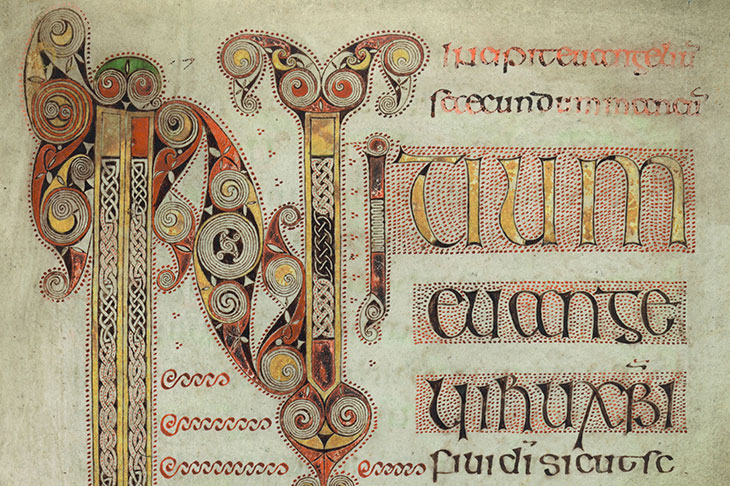 Incipit euangeliū
secundum marcū
INITIUM
euange
lii ihu xpi
fili dī sicut sc